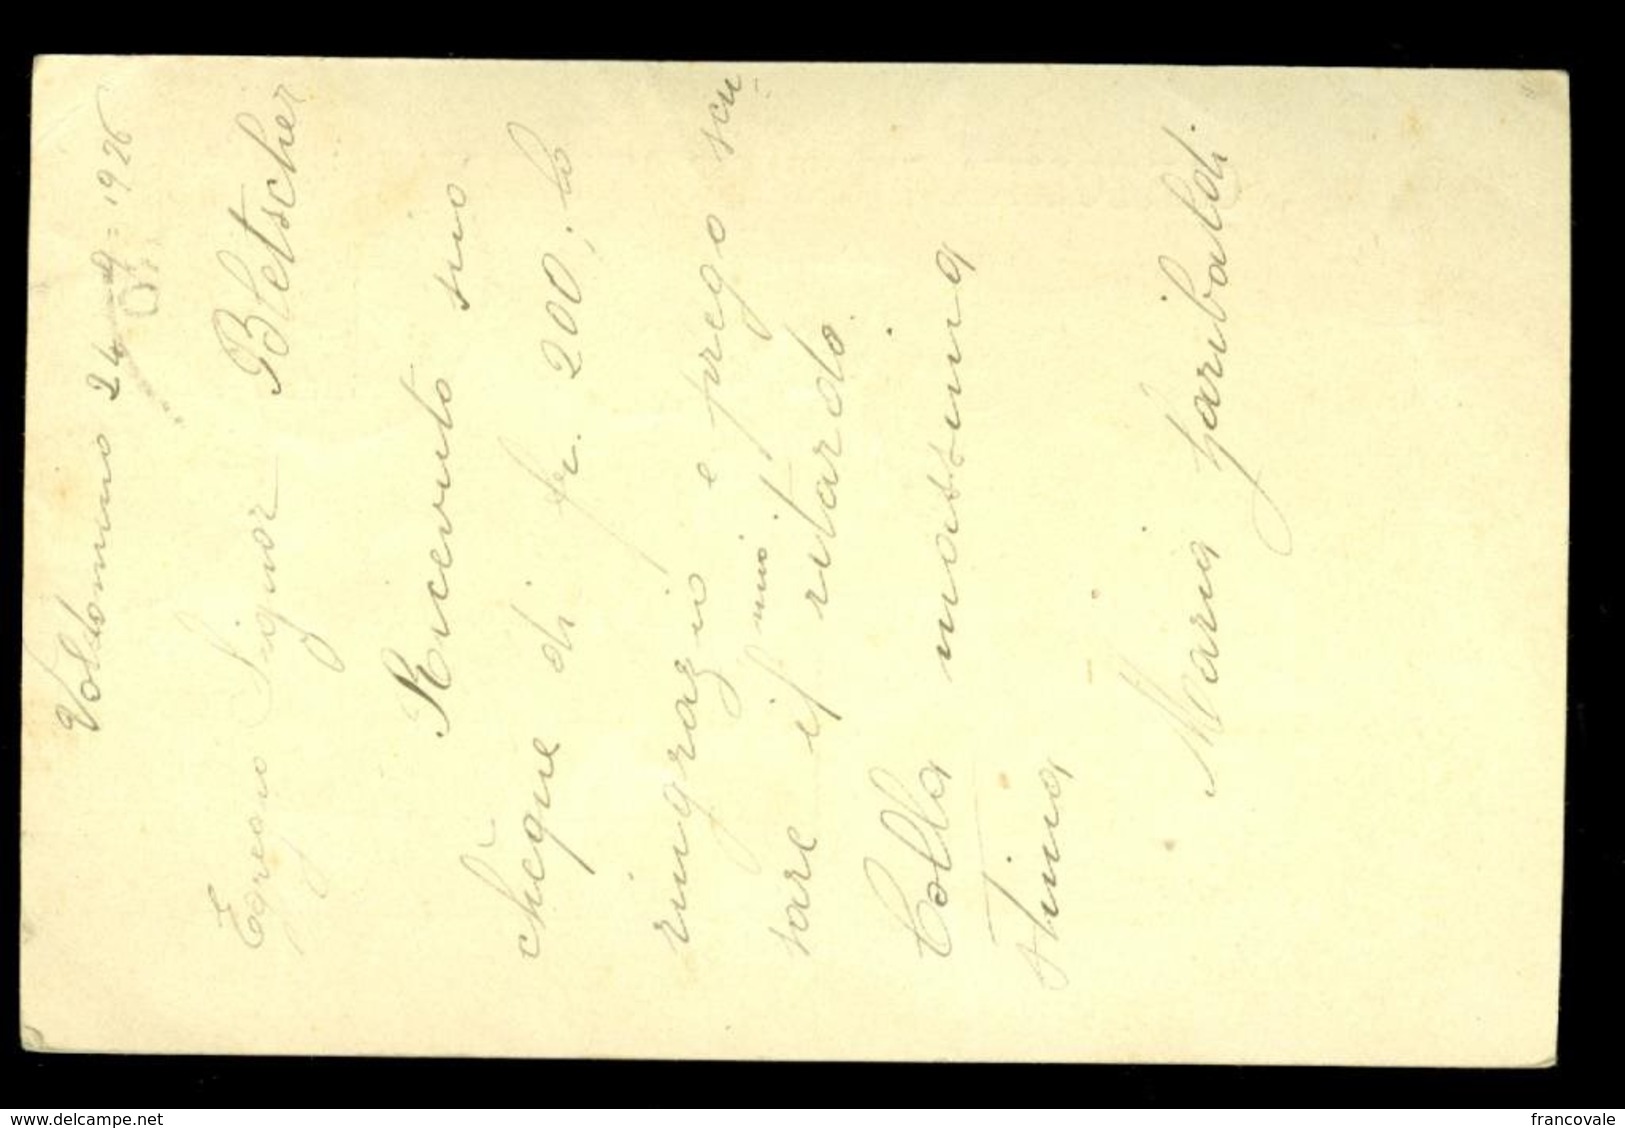 Voldomino 24=9=1926
Egregio Signor Bletscher
Ricevuto suo
chèque di fr. 200; lo
ringrazio e prego scu
sare il mio ritardo.
Colla massima
stima
Maria Garibaldi
www.delcampe.net
francovale